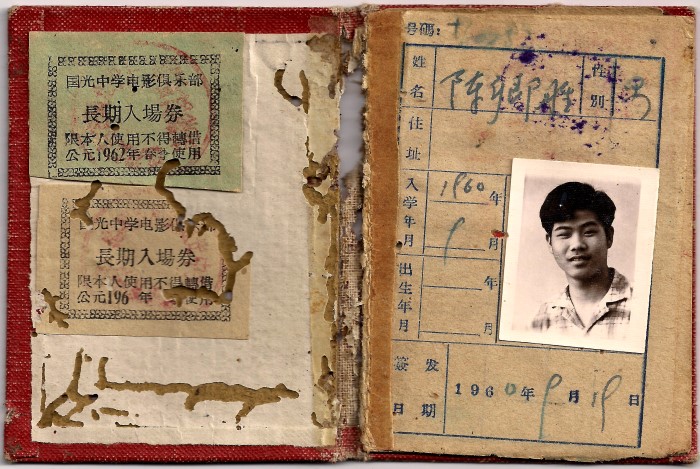 国光中学电影俱乐部
長期入場券
限本人使用不得轉借
公元1962年春季使用
国光中学电影俱乐部
長期入場券
限本人使用不得轉借
公元196 年 使用
号碼:
姓名 陈鄉胜 性別 男
住址
入学年月 1960年
9月
出生年月 年
月
签发日期 1960年9月19日